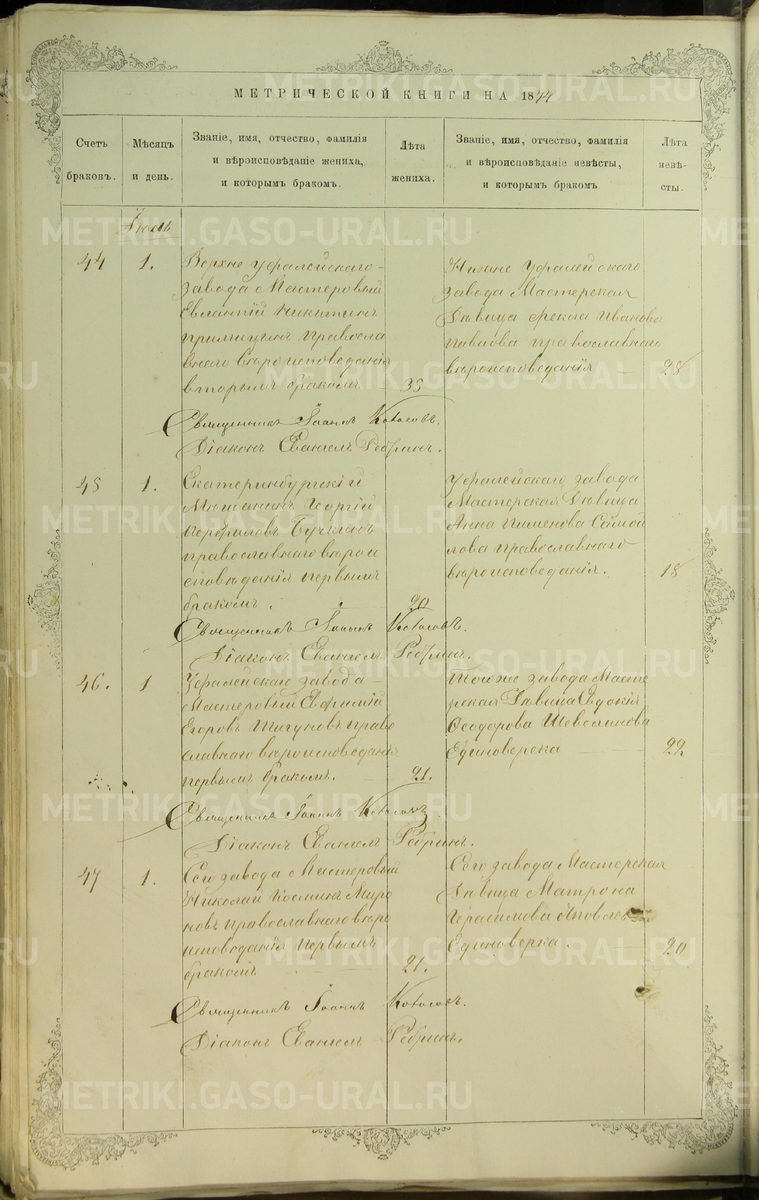 МЕТРИЧЕСКОЙ КНИГИ НА 1874
Счетъ браковъ.
Мѣсяцъ и день.
Званіе, имя, отчество, фамилія
и вѣроисповѣданіе жениха,
и которымъ бракомъ.
Лѣта жениха.
Званіе, имя, отчество, фамилія
и вѣроисповѣданіе невѣсты,
и которымъ бракомъ
Лѣта невѣ-
сты.
44
1.
Верхне Уфалейскаго
завода Мастеровый
Никитинъ
Правосла
внаго вѣроисповеданія
вторымъ бракомъ
35
Нижне Уфалейскаго
завода Мастерская
дѣвица Фекла Иванова
Павлова православнаго
вѣроисповеданія
28
Священникъ Іоаннъ
Діаконъ Евангелъ Ребринъ.
45
1.
Екатеринбургскій
Мѣщанинъ Георгій
православнаго вѣрои
сповѣданія первымъ
бракомъ.
20
Уфалейскаго завода
Мастерская дѣвица
Анна Пименова
лова православнаго
вѣроисповеданія.
18
Священникъ Іоаннъ
Діаконъ Евангелъ Ребринъ.
46.
1
Уфалейскаго завода
Мастеровый Евфимій
Егоровъ Шигуновъ Право
славнаго вѣроисповеданія
первымъ бракомъ.
21.
Тогоже завода Масте
рская дѣвица Евдокія
Феодорова
Единоверка
22
Священникъ Іоаннъ
Діаконъ Евангелъ Ребринъ.
47
1.
Сего завода Мастеровый
Николай Косминъ Миро
новъ Православнаго вѣро
исповеданія первымъ
бракомъ
21.
Сего завода Мастерская
дѣвица Матрона
Герасимова
Единоверка.
20
Священникъ Іоаннъ
Діаконъ Евангелъ Ребринъ.
METRIKI.GASO-URAL.RU